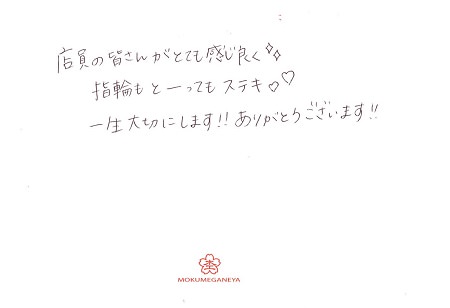 店員の皆さんがとても感じ良く✧✧
指輪もと一ってもステキ♡♡
一生大切にします!! ありがとうございます!!
MOKUMEGANEYA